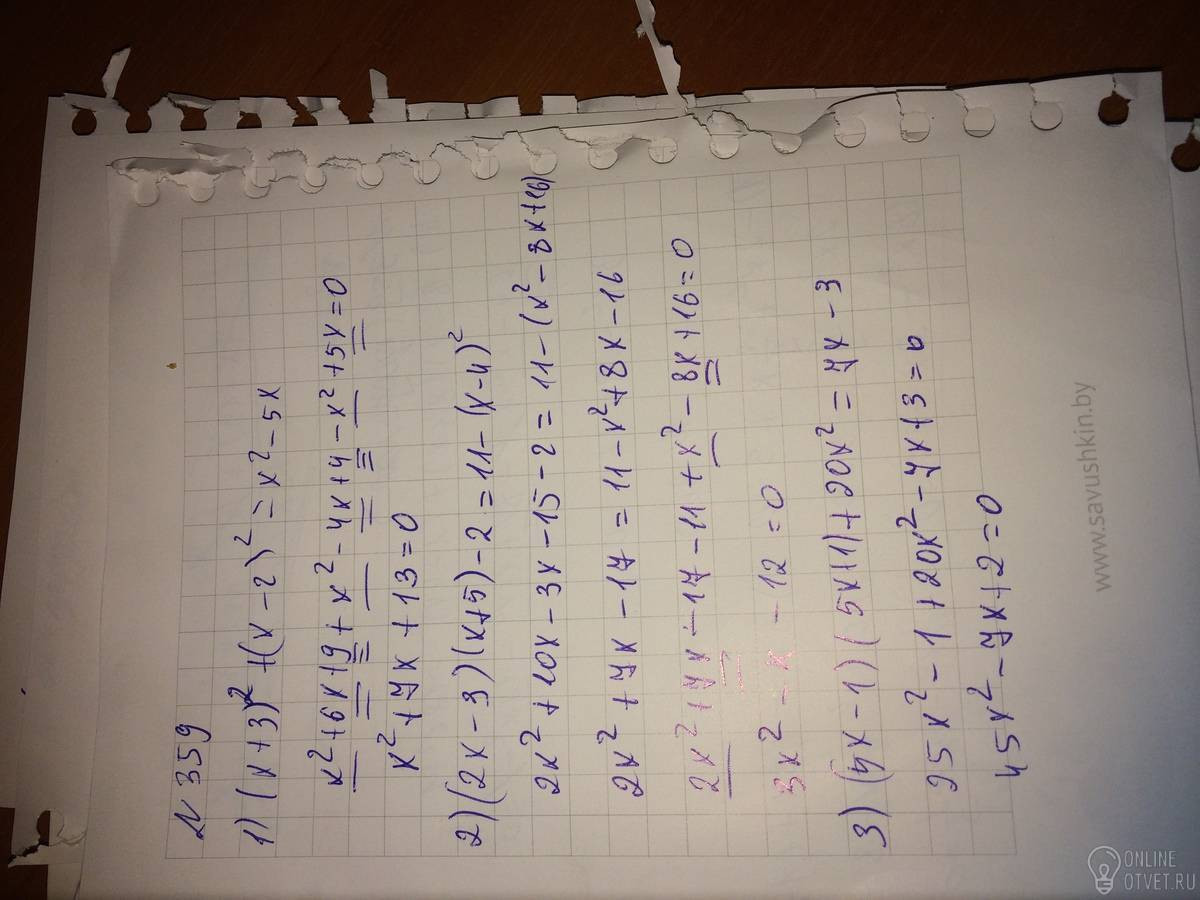 N 359
1) (x+3)² + (x-2)² = x² - 5x
x² + 6x + 9 + x² - 4x + 4 - x² + 5x = 0
x² + 7x + 13 = 0
2) (2x-3)(x+5) - 2 = 11 - (x-4)²
2x² + 10x - 3x - 15 - 2 = 11 - (x² - 8x + 16)
2x² + 7x - 17 = 11 - x² + 8x - 16
2x² + 7x - 17 - 11 + x² - 8x + 16 = 0
3x² - x - 12 = 0
3) (5x-1)(5x+1) + 20x² = 7x - 3
25x² - 1 + 20x² - 7x + 3 = 0
45x² - 7x + 2 = 0
www.savushkin.by
ONLINE
OTVET.RU